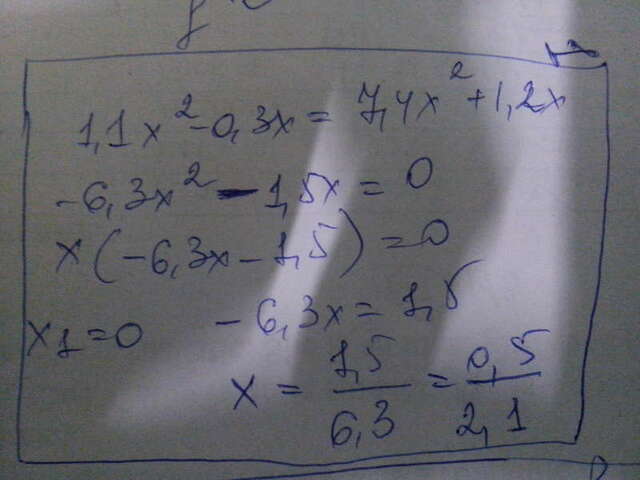 1,1x² - 0,3x = 7,4x² + 1,2x
-6,3x² - 1,5x = 0
x(-6,3x - 1,5) = 0
x₁ = 0 -6,3x = 1,5
x = 1,5/6,3 = 0,5/2,1